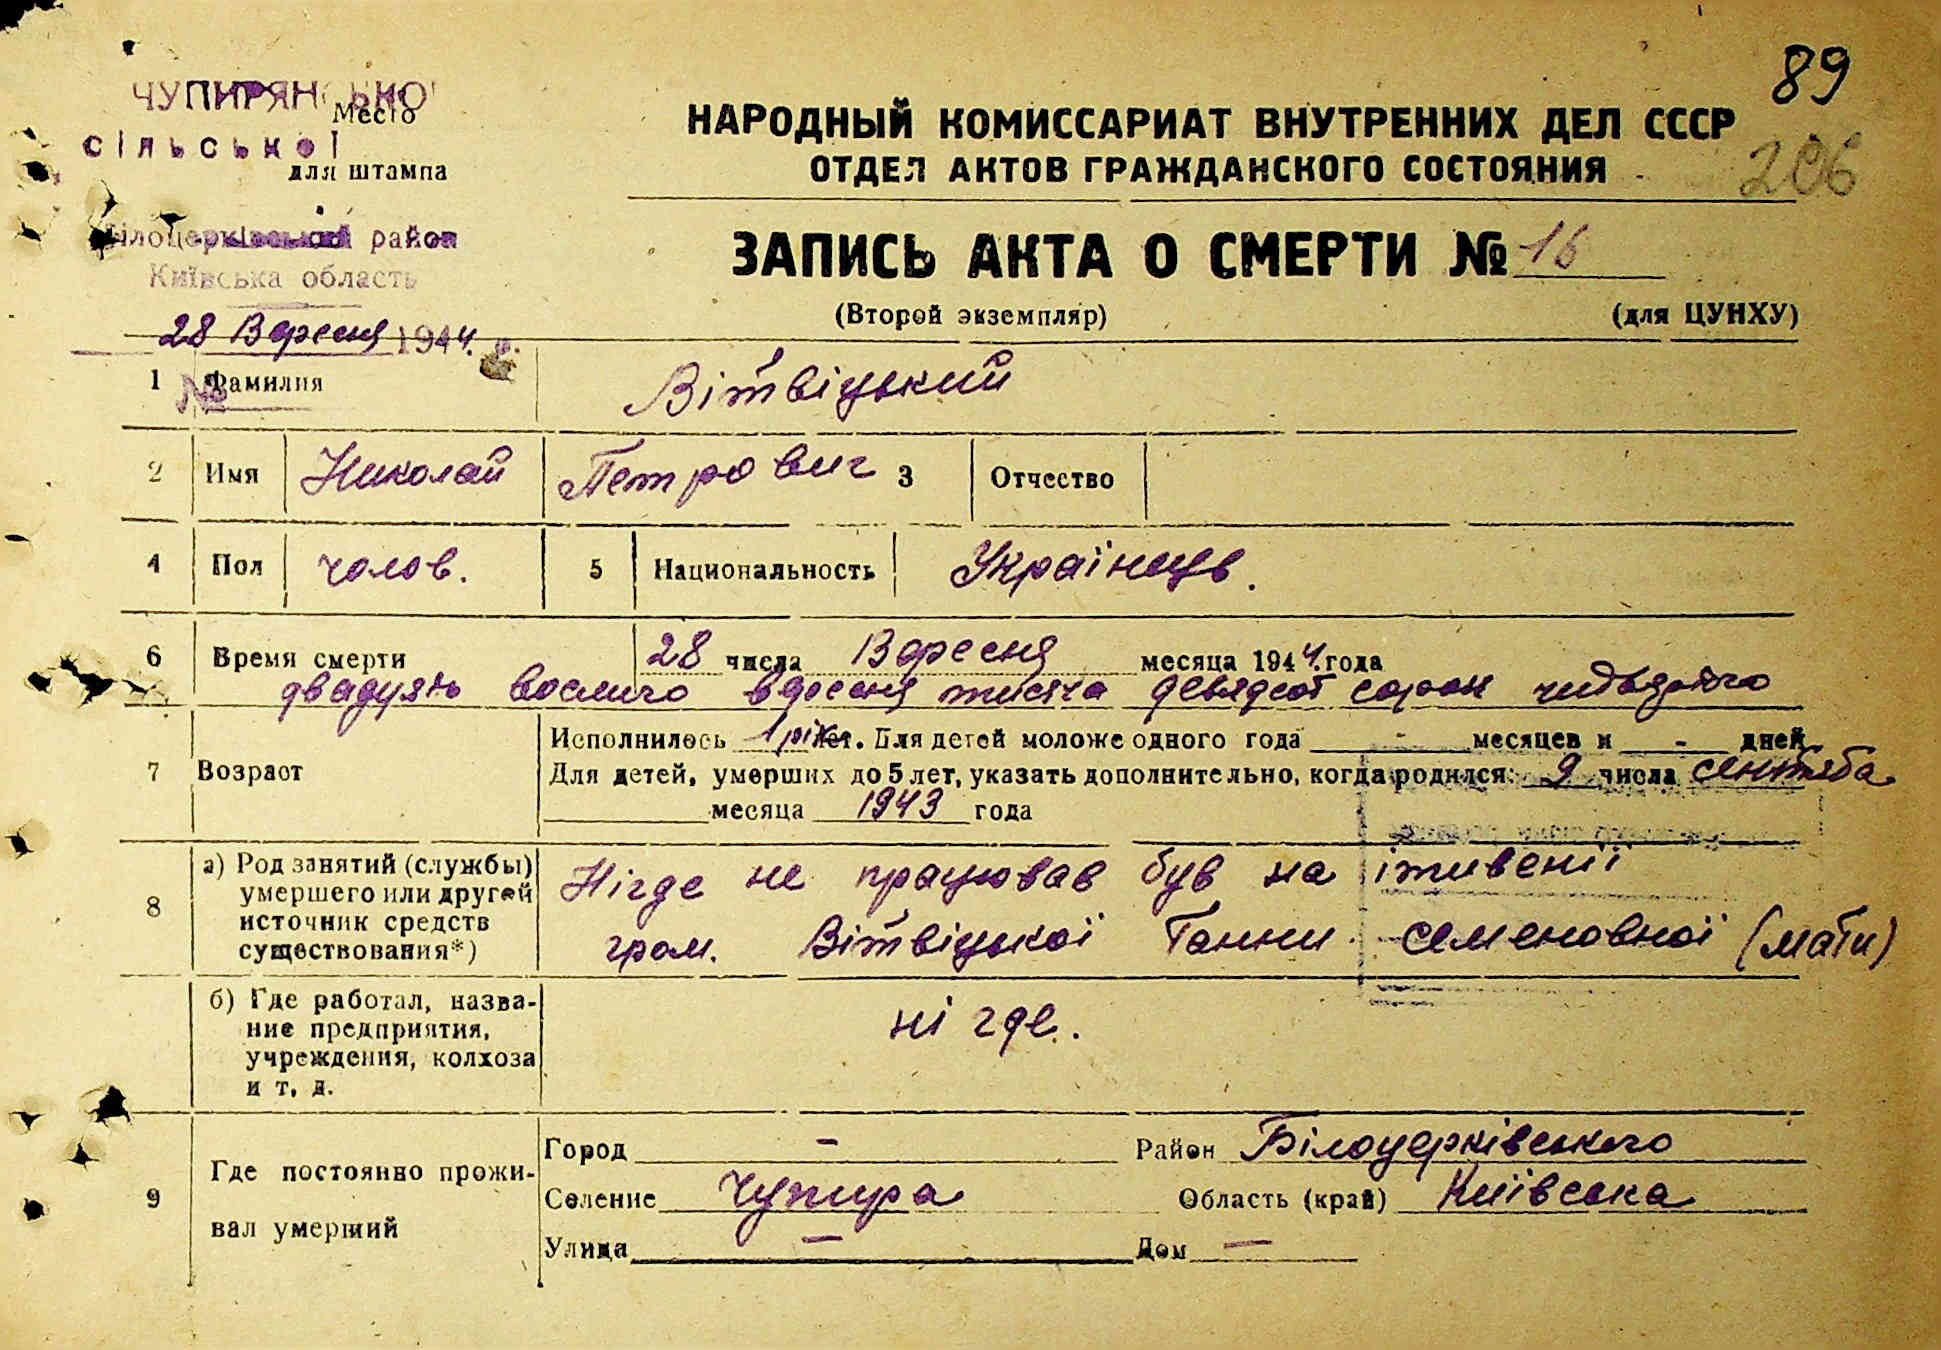 89
206
ЧУПИРЯНСЬКОЇ
Место
СІЛЬСЬКОЇ
для штампа
Білоцерківський район
Київська область
28 Вересня 1944 р.
№
НАРОДНЫЙ КОМИССАРИАТ ВНУТРЕННИХ ДЕЛ СССР
ОТДЕЛ АКТОВ ГРАЖДАНСКОГО СОСТОЯНИЯ
ЗАПИСЬ АКТА О СМЕРТИ № 16
(Второй экземпляр) (для ЦУНХУ)
1 Фамилия Вітвіцький
2 Имя Николай Петрович 3 Отчество
4 Пол чолов. 5 Национальность Українець.
6 Время смерти 28 числа Вересня месяца 1944 года
двадцять восьмого вересня тисяча девядсот сорок
7 Возраст
Исполнилось 1 рік лет. Для детей моложе одного года - месяцев и - дней
Для детей, умерших до 5 лет, указать дополнительно, когда родился: 9 числа сентяба
месяца 1943 года
8 а) Род занятий (службы) умершего или другой источник средств существования*)
Нігде не працював був на іживенії
гром. Вітвіцької Ганни семеновної (мати)
б) Где работал, название предприятия, учреждения, колхоза и т, д.
ні где.
9 Где постоянно проживал умерший
Город - Район Білоцерківського
Селение Чупира Область (край) Київська
Улица — Дом —